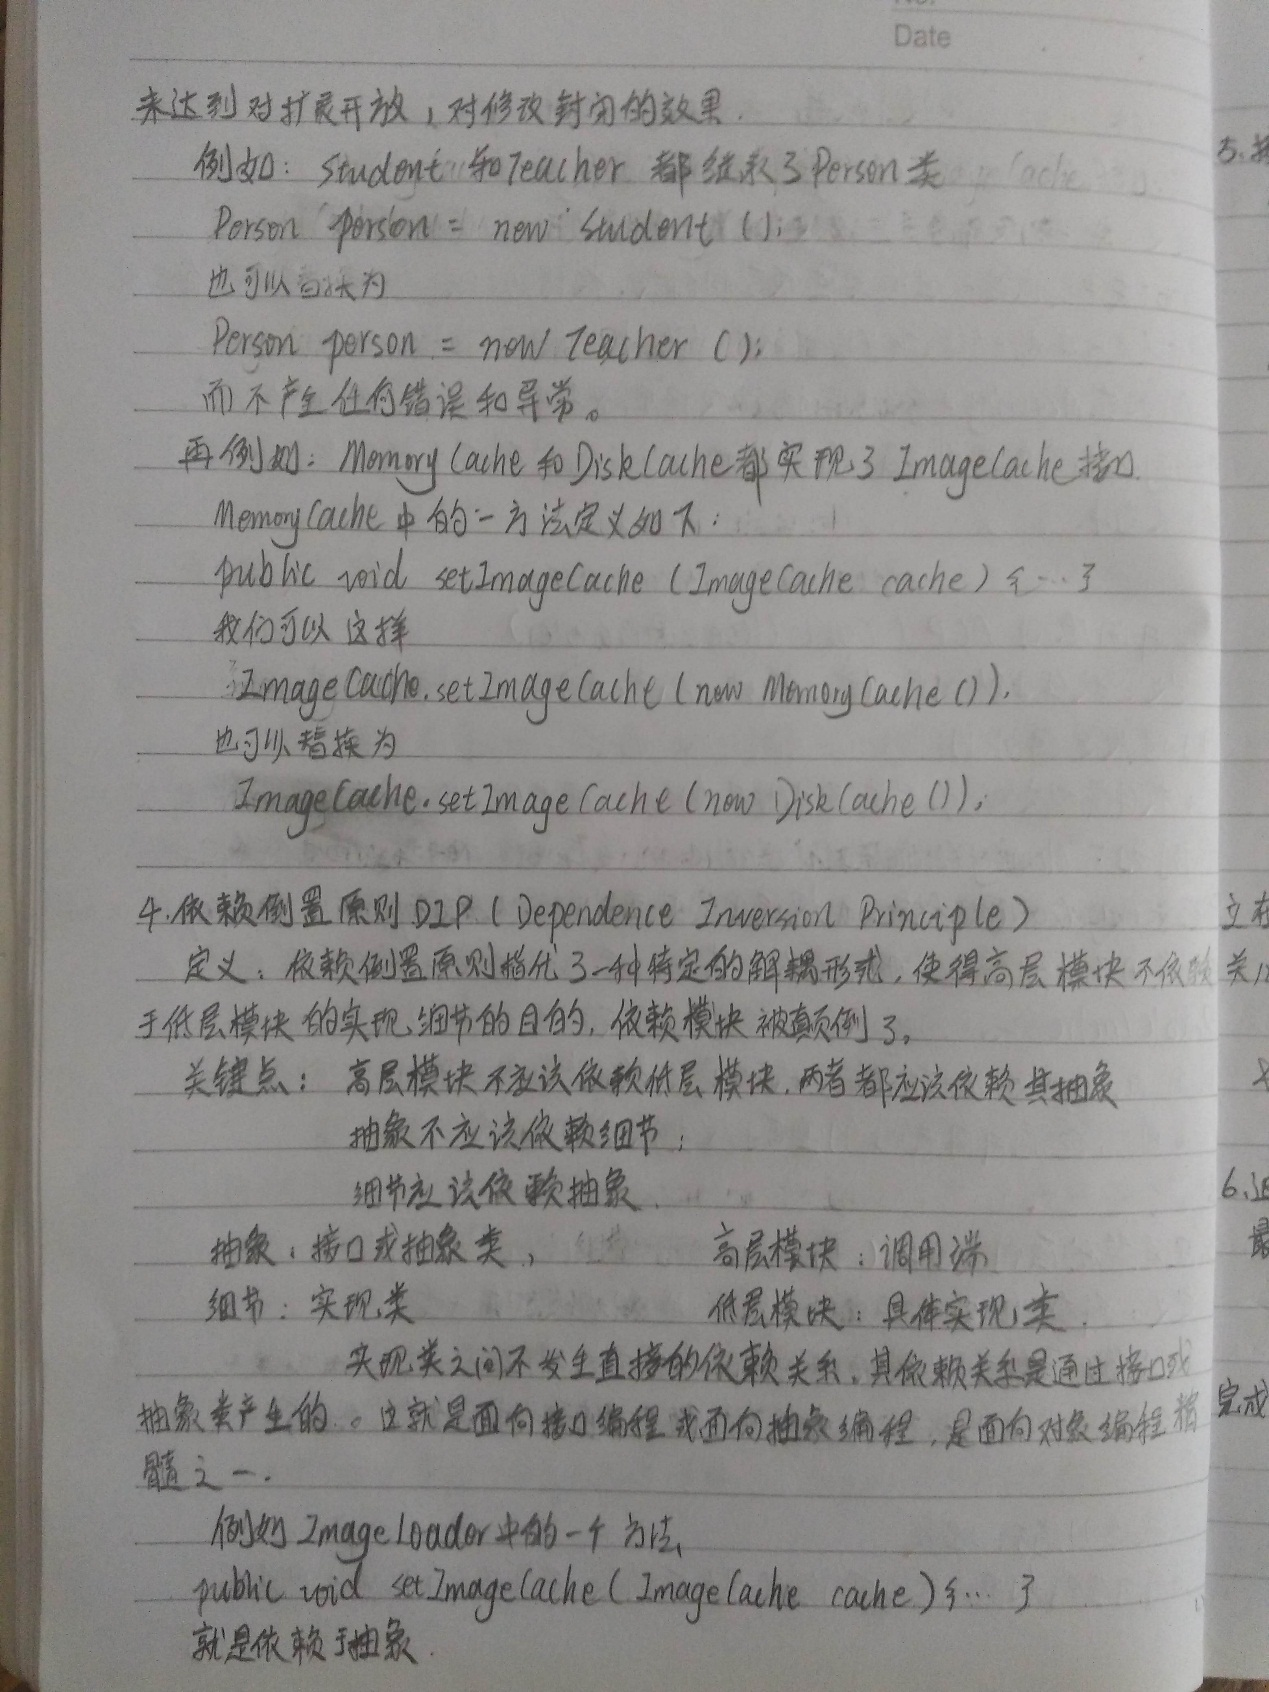 Date
来达到对扩展开放，对修改封闭的效果.
例如: Student 和Teacher 都继承了Person类
Person person = new Student ();
也可以替换为
Person person = new Teacher ();
而不产生任何错误和异常。
再例如: MemoryCache 和DiskCache都实现了 ImageCache接口.
MemoryCache中的一方法定义如下:
public void setImageCache (ImageCache cache) {...}
我们可以这样
ImageCache.setImageCache (new MemoryCache ()).
也可以替换为
ImageCache.setImageCache (new DiskCache ());
4.依赖倒置原则DIP ( Dependence Inversion Principle )
定义: 依赖倒置原则指代了一种特定的解耦形式, 使得高层模块不依赖
于低层模块的实现细节的目的, 依赖模块被颠倒了。
关键点: 高层模块不应该依赖低层模块. 两者都应该依赖其抽象
抽象不应该依赖细节;
细节应该依赖抽象.
抽象: 接口或抽象类, 高层模块: 调用端
细节: 实现类 低层模块: 具体实现类.
实现类之间不发生直接的依赖关系. 其依赖关系是通过接口或
抽象类产生的。这就是面向接口编程或面向抽象编程, 是面向对象编程精
髓之一.
例如 ImageLoader中的一个方法,
public void setImageCache ( ImageCache cache) {... }
就是依赖于抽象.
5.
立在
6.
最
完成